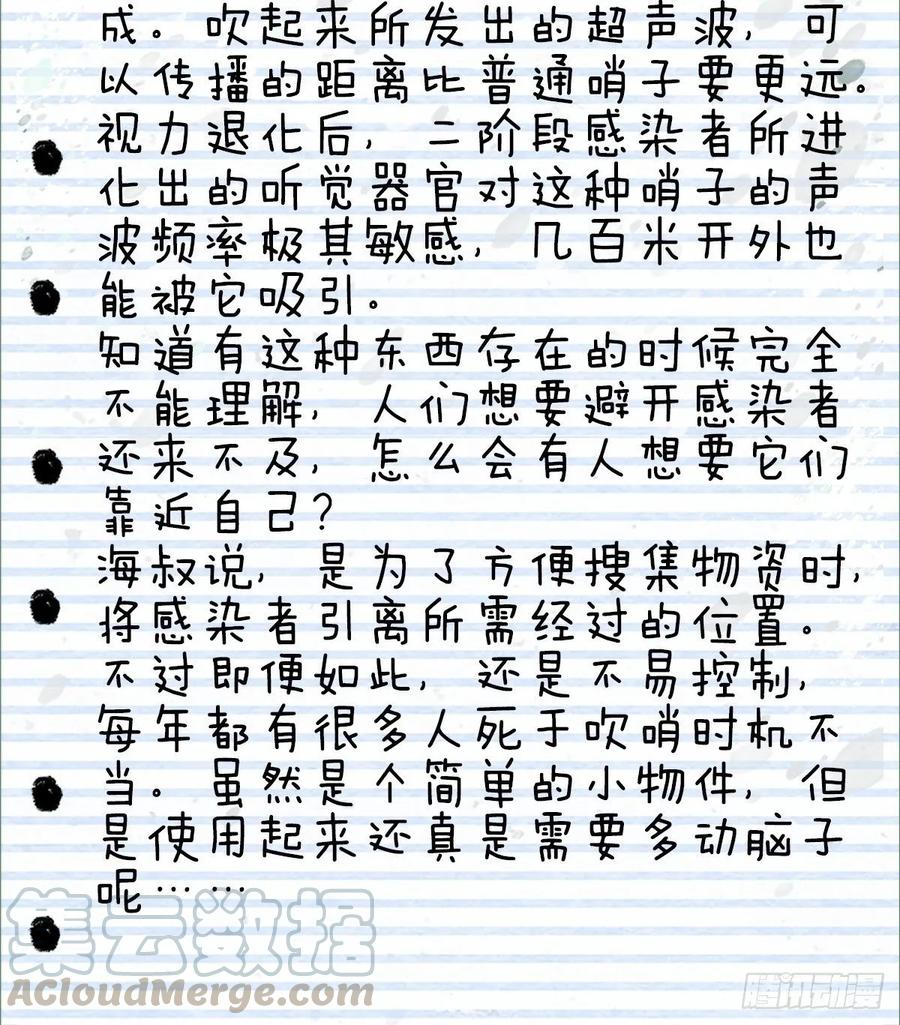 成。吹起来所发出的超声波，可
以传播的距离比普通哨子要更远。
视力退化后，二阶段感染者所进
化出的听觉器官对这种哨子的声
波频率极其敏感，几百米开外也
能被它吸引。
知道有这种东西存在的时候完全
不能理解，人们想要避开感染者
还来不及，怎么会有人想要它们
靠近自己？
海叔说，是为了方便搜集物资时，
将感染者引离所需经过的位置。
不过即便如此，还是不易控制，
每年都有很多人死于吹哨时机不
当。虽然是个简单的小物件，但
是使用起来还真是需要多动脑子
呢……
集云数据
ACloudMerge.com
腾讯动漫